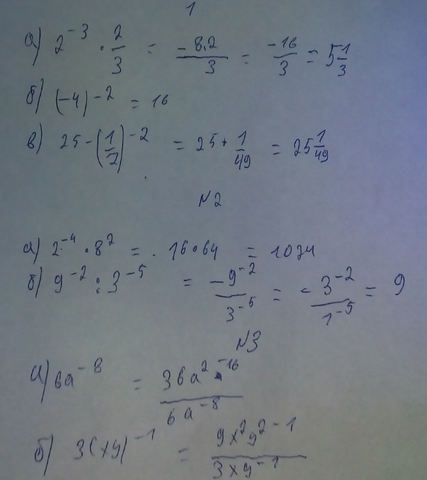 1
а) 2^-3 · 2/3 = -8·2/3 = -16/3 = 5 1/3
б) (-4)^-2 = 16
в) 25-(1/7)^-2 = 25+1/49 = 25 1/49
N2
а) 2^-4 · 8^2 = 16·64 = 1024
б) 9^-2 : 3^-5 = -9^-2/3^-5 = -3^-2/1^-5 = 9
N3
а) 6a^-8 = 36a^2-16/6a^-8
б) 3(xy)^-1 = 9x^2y^2-1/3xy^-1